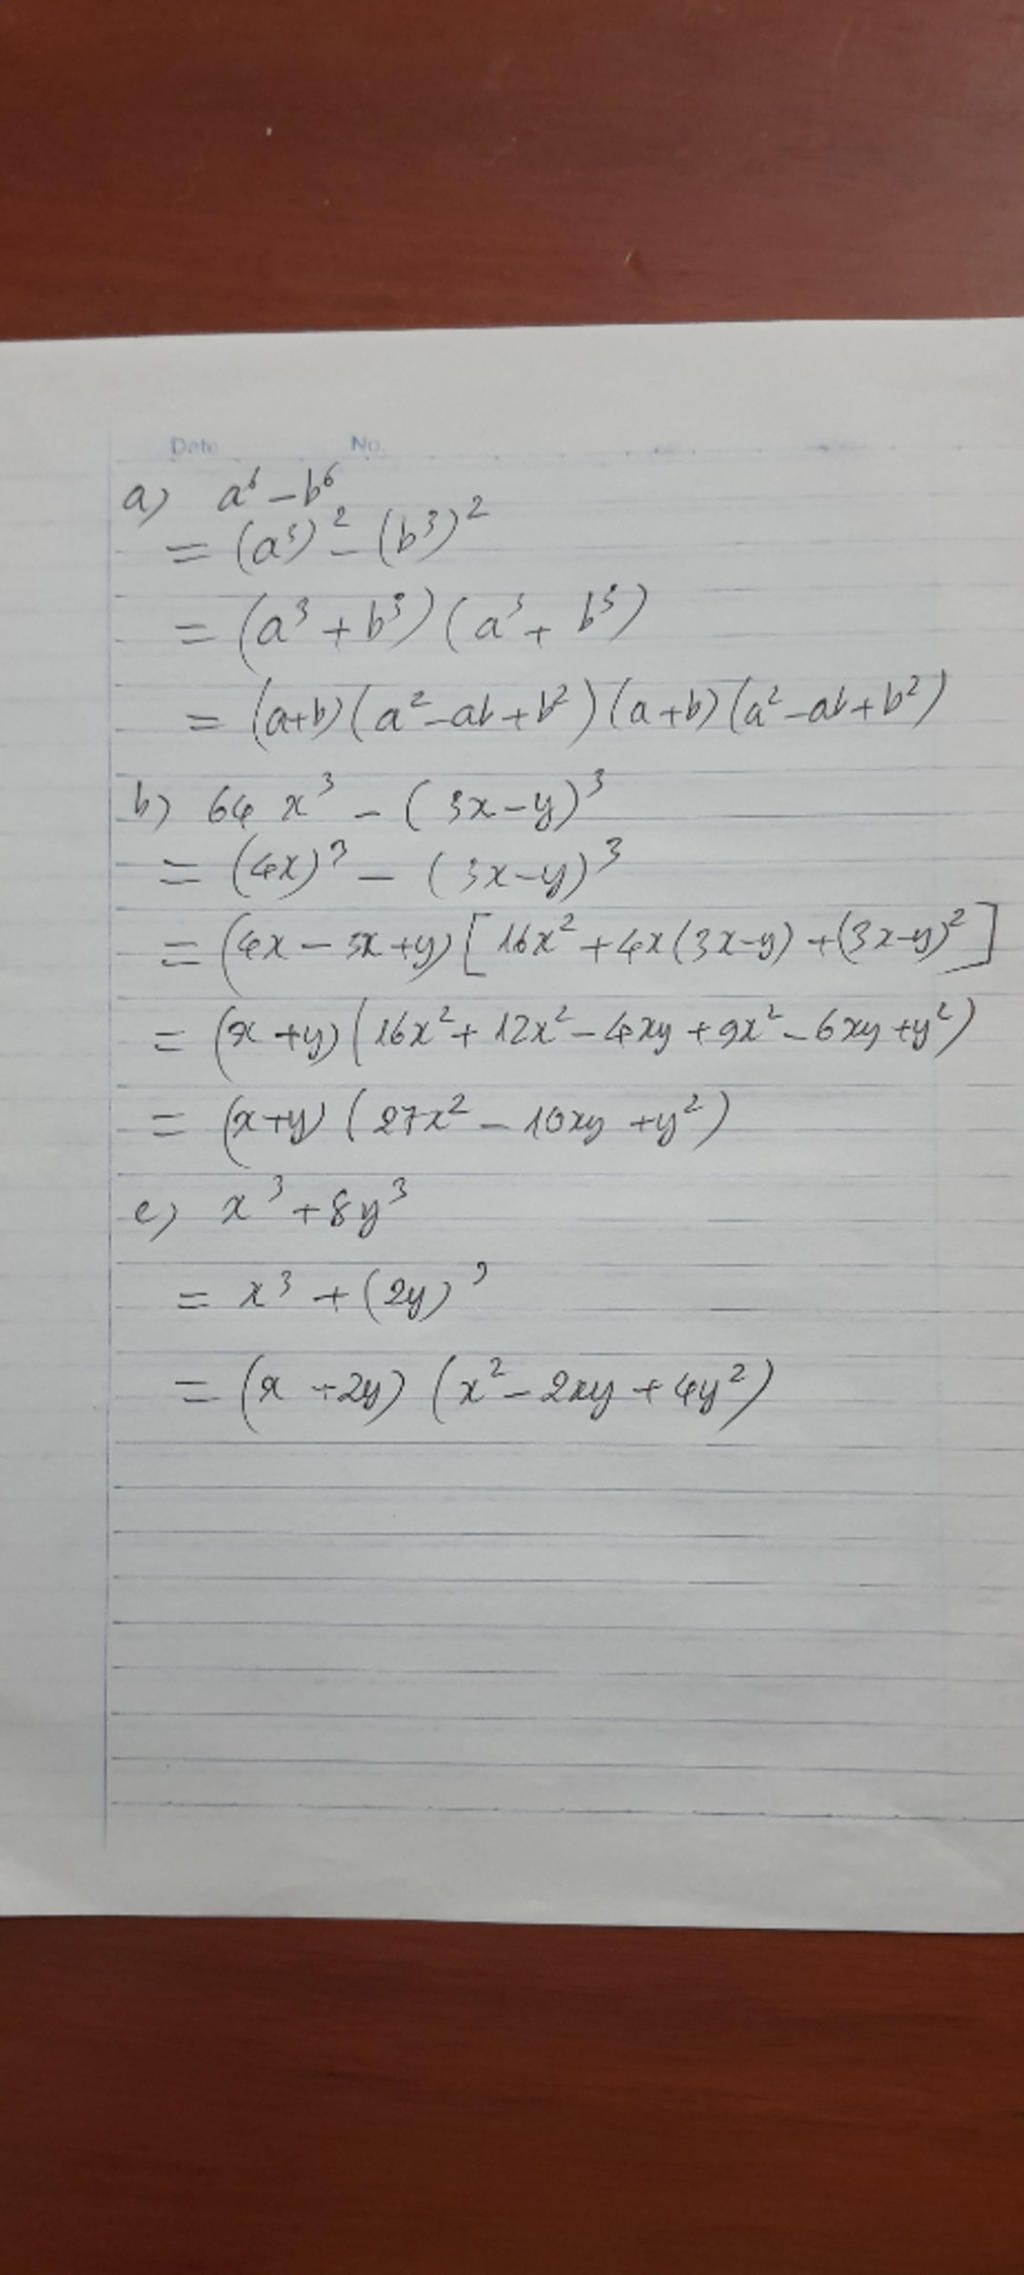 Date No.
a) a⁶ - b⁶
= (a³)² - (b³)²
= (a³ + b³)(a³ + b³)
= (a+b)(a² - ab + b²)(a+b)(a² - ab + b²)
b) 64 x³ - (3x - y)³
= (4x)³ - (3x - y)³
= (4x - 3x + y)[16x² + 4x(3x - y) + (3x - y)²]
= (x + y)(16x² + 12x² - 4xy + 9x² - 6xy + y²)
= (x + y)(27x² - 10xy + y²)
c) x³ + 8y³
= x³ + (2y)³
= (x + 2y)(x² - 2xy + 4y²)